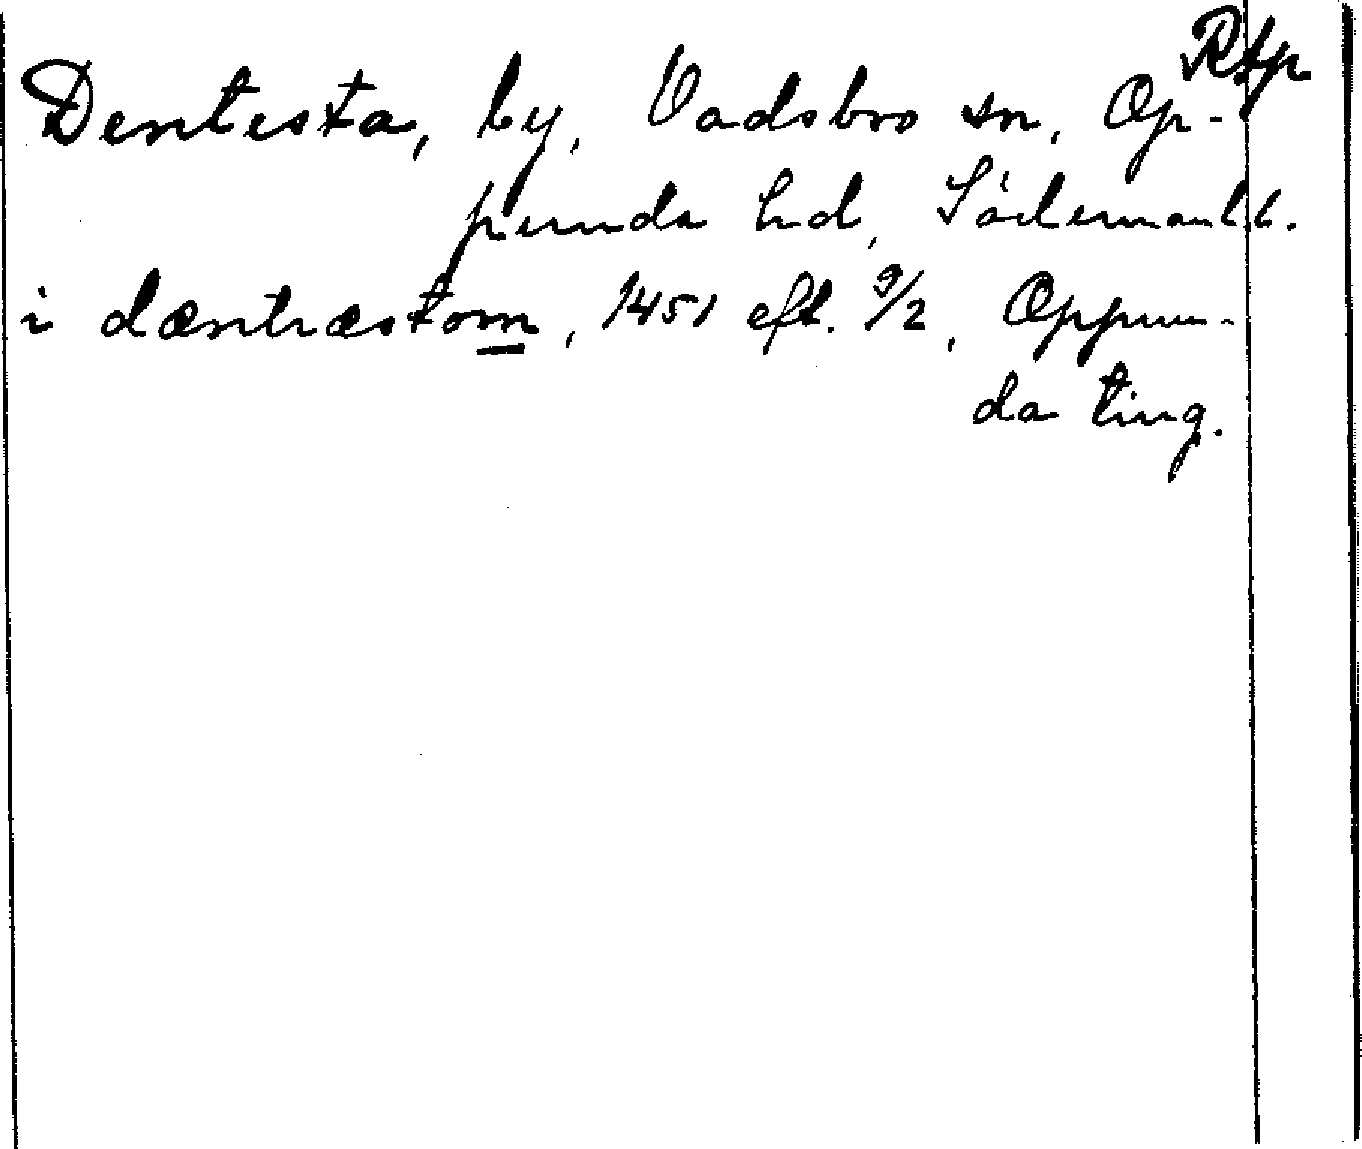 Rfp
Dentesta, by, Vadsbro sn, Op-
punda hd, Södermanl. l.
i dæntræstom, 1451 eft. 9/2, Oppun-
da ting.